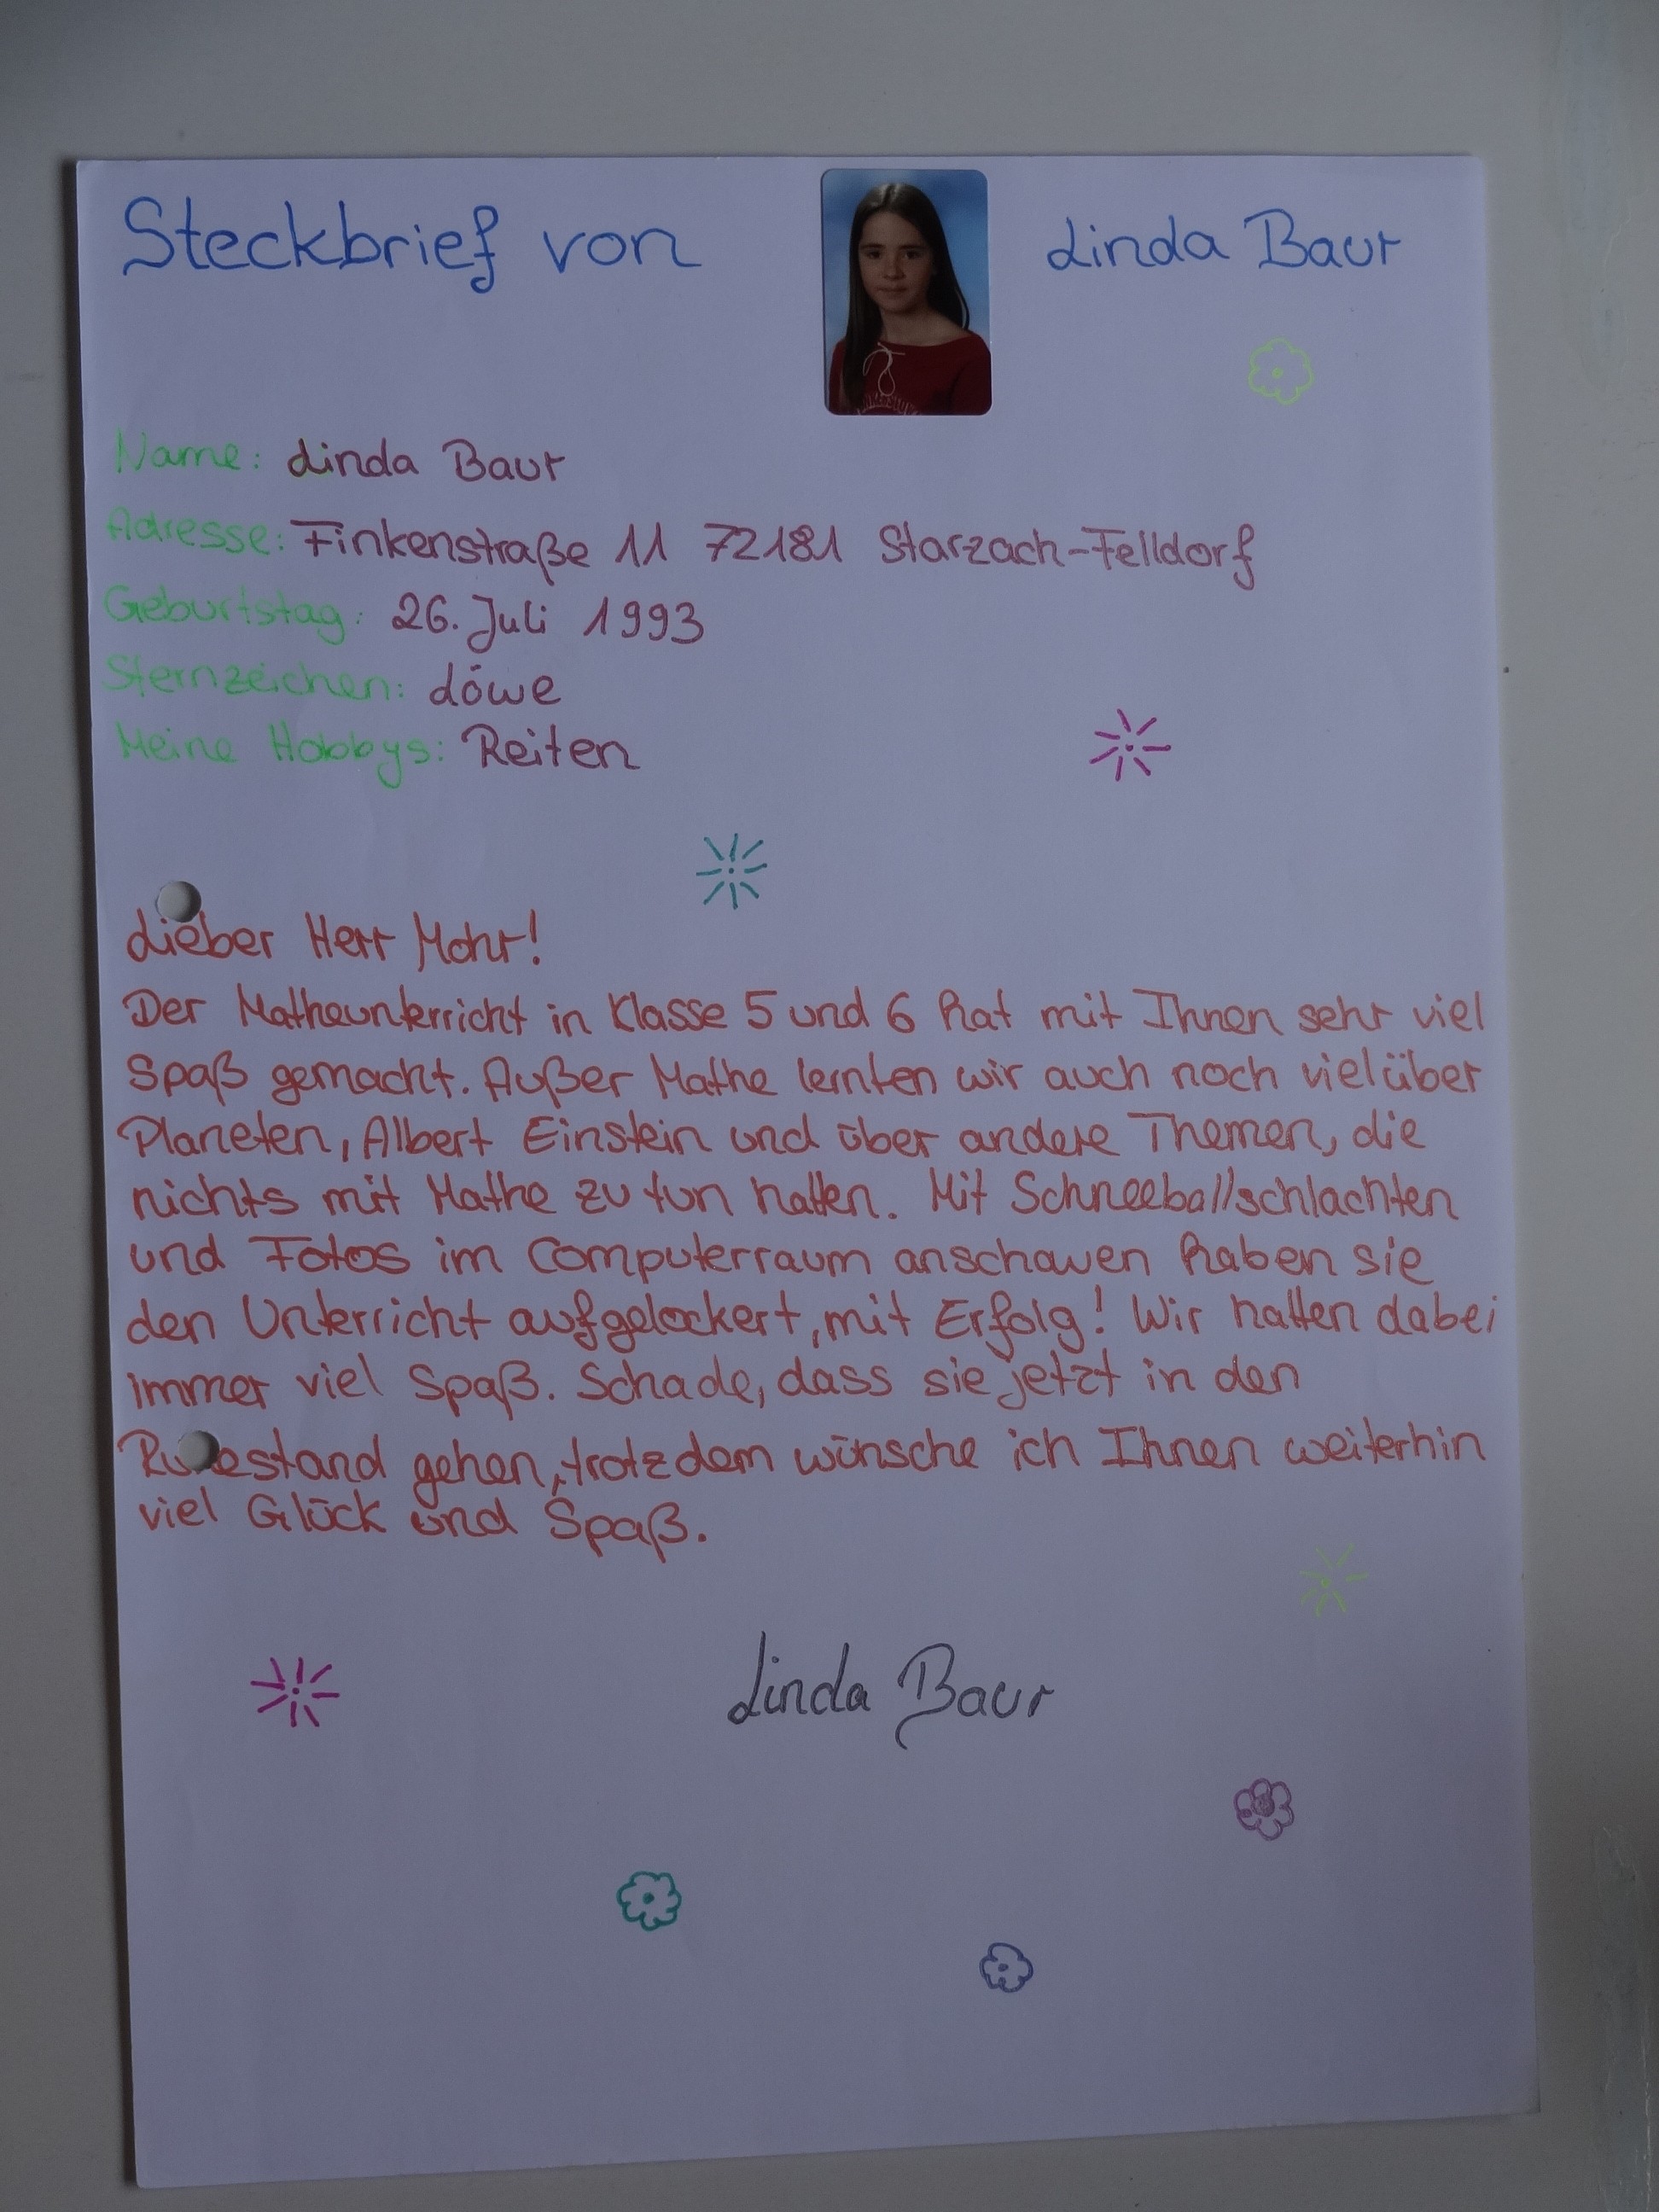 Steckbrief von Linda Baur
Name: Linda Baur
Adresse: Finkenstraße 11 72181 Starzach-Felldorf
Geburtstag: 26. Juli 1993
Sternzeichen: Löwe
Meine Hobbys: Reiten
Lieber Herr Mohr!
Der Matheunterricht in Klasse 5 und 6 hat mit Ihnen sehr viel
Spaß gemacht. Außer Mathe lernten wir auch noch viel über
Planeten, Albert Einstein und über andere Themen, die
nichts mit Mathe zu tun hatten. Mit Schneeballschlachten
und Fotos im Computerraum anschauen haben sie
den Unterricht aufgelockert, mit Erfolg! Wir hatten dabei
immer viel Spaß. Schade, dass sie jetzt in den
Ruhestand gehen, trotzdem wünsche ich Ihnen weiterhin
viel Glück und Spaß.
Linda Baur